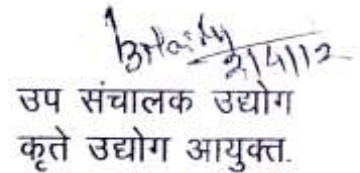 2/4/12
उप संचालक उद्योग
कृते उद्योग आयुक्त.